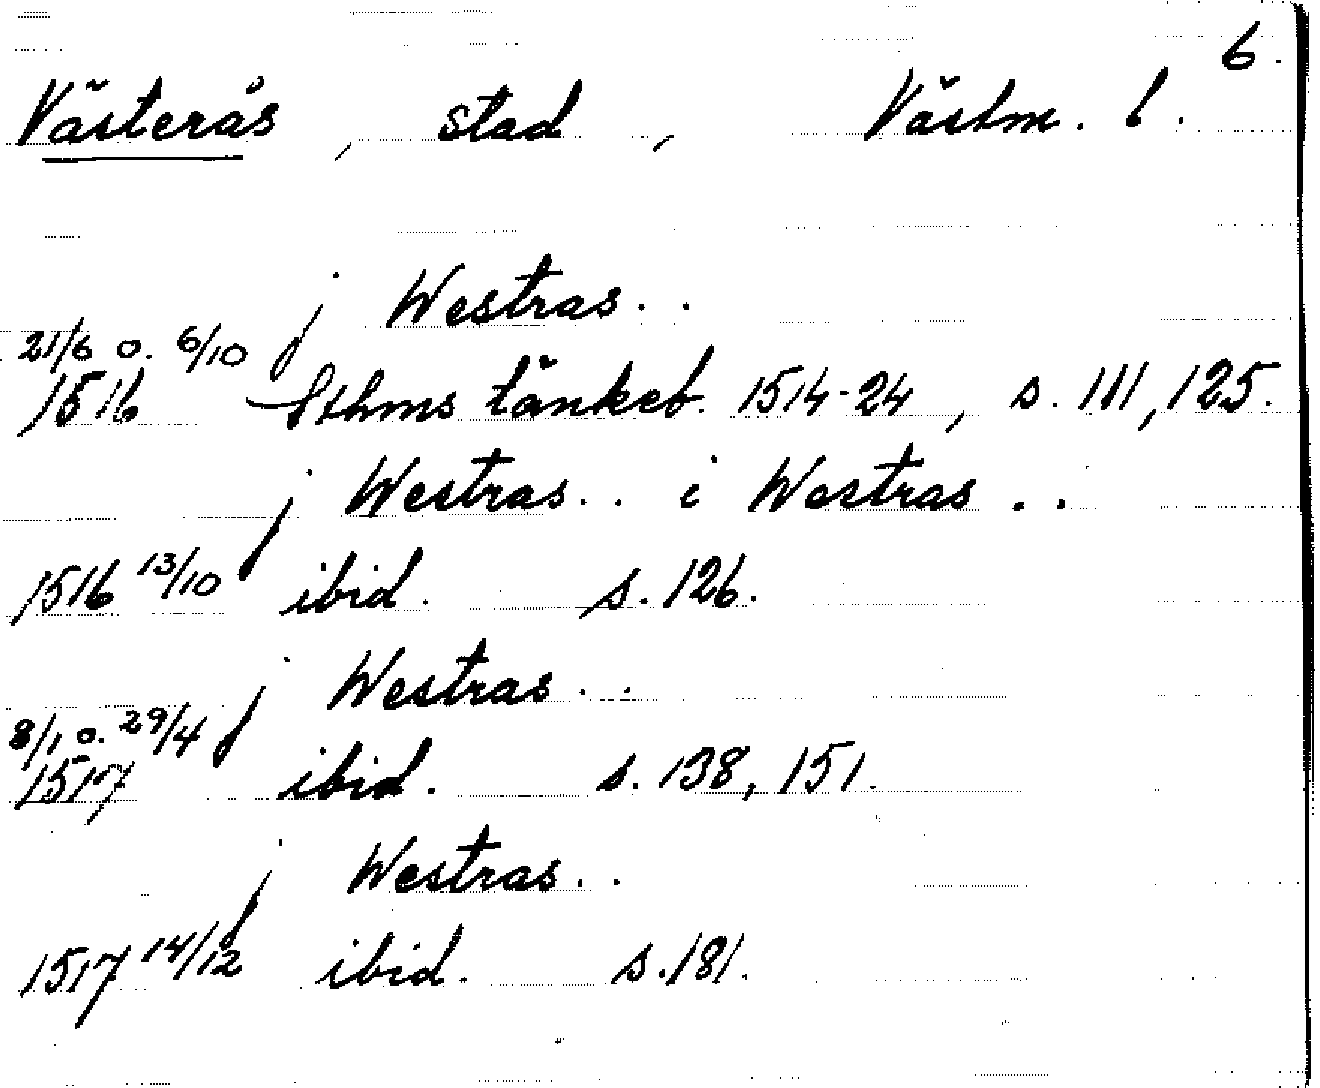 6.
Västerås, stad, Västm. l.
j Westras. .
21/6 o. 6/10
1516 Sthms tänkeb. 1514-24, s. 111, 125.
j Westras. . i Westras . .
1516 13/10 ibid. s. 126.
j Westras. .
8/1 o. 29/4
1517 ibid. s. 138, 151.
j Westras. .
1517 14/12 ibid. s. 181.